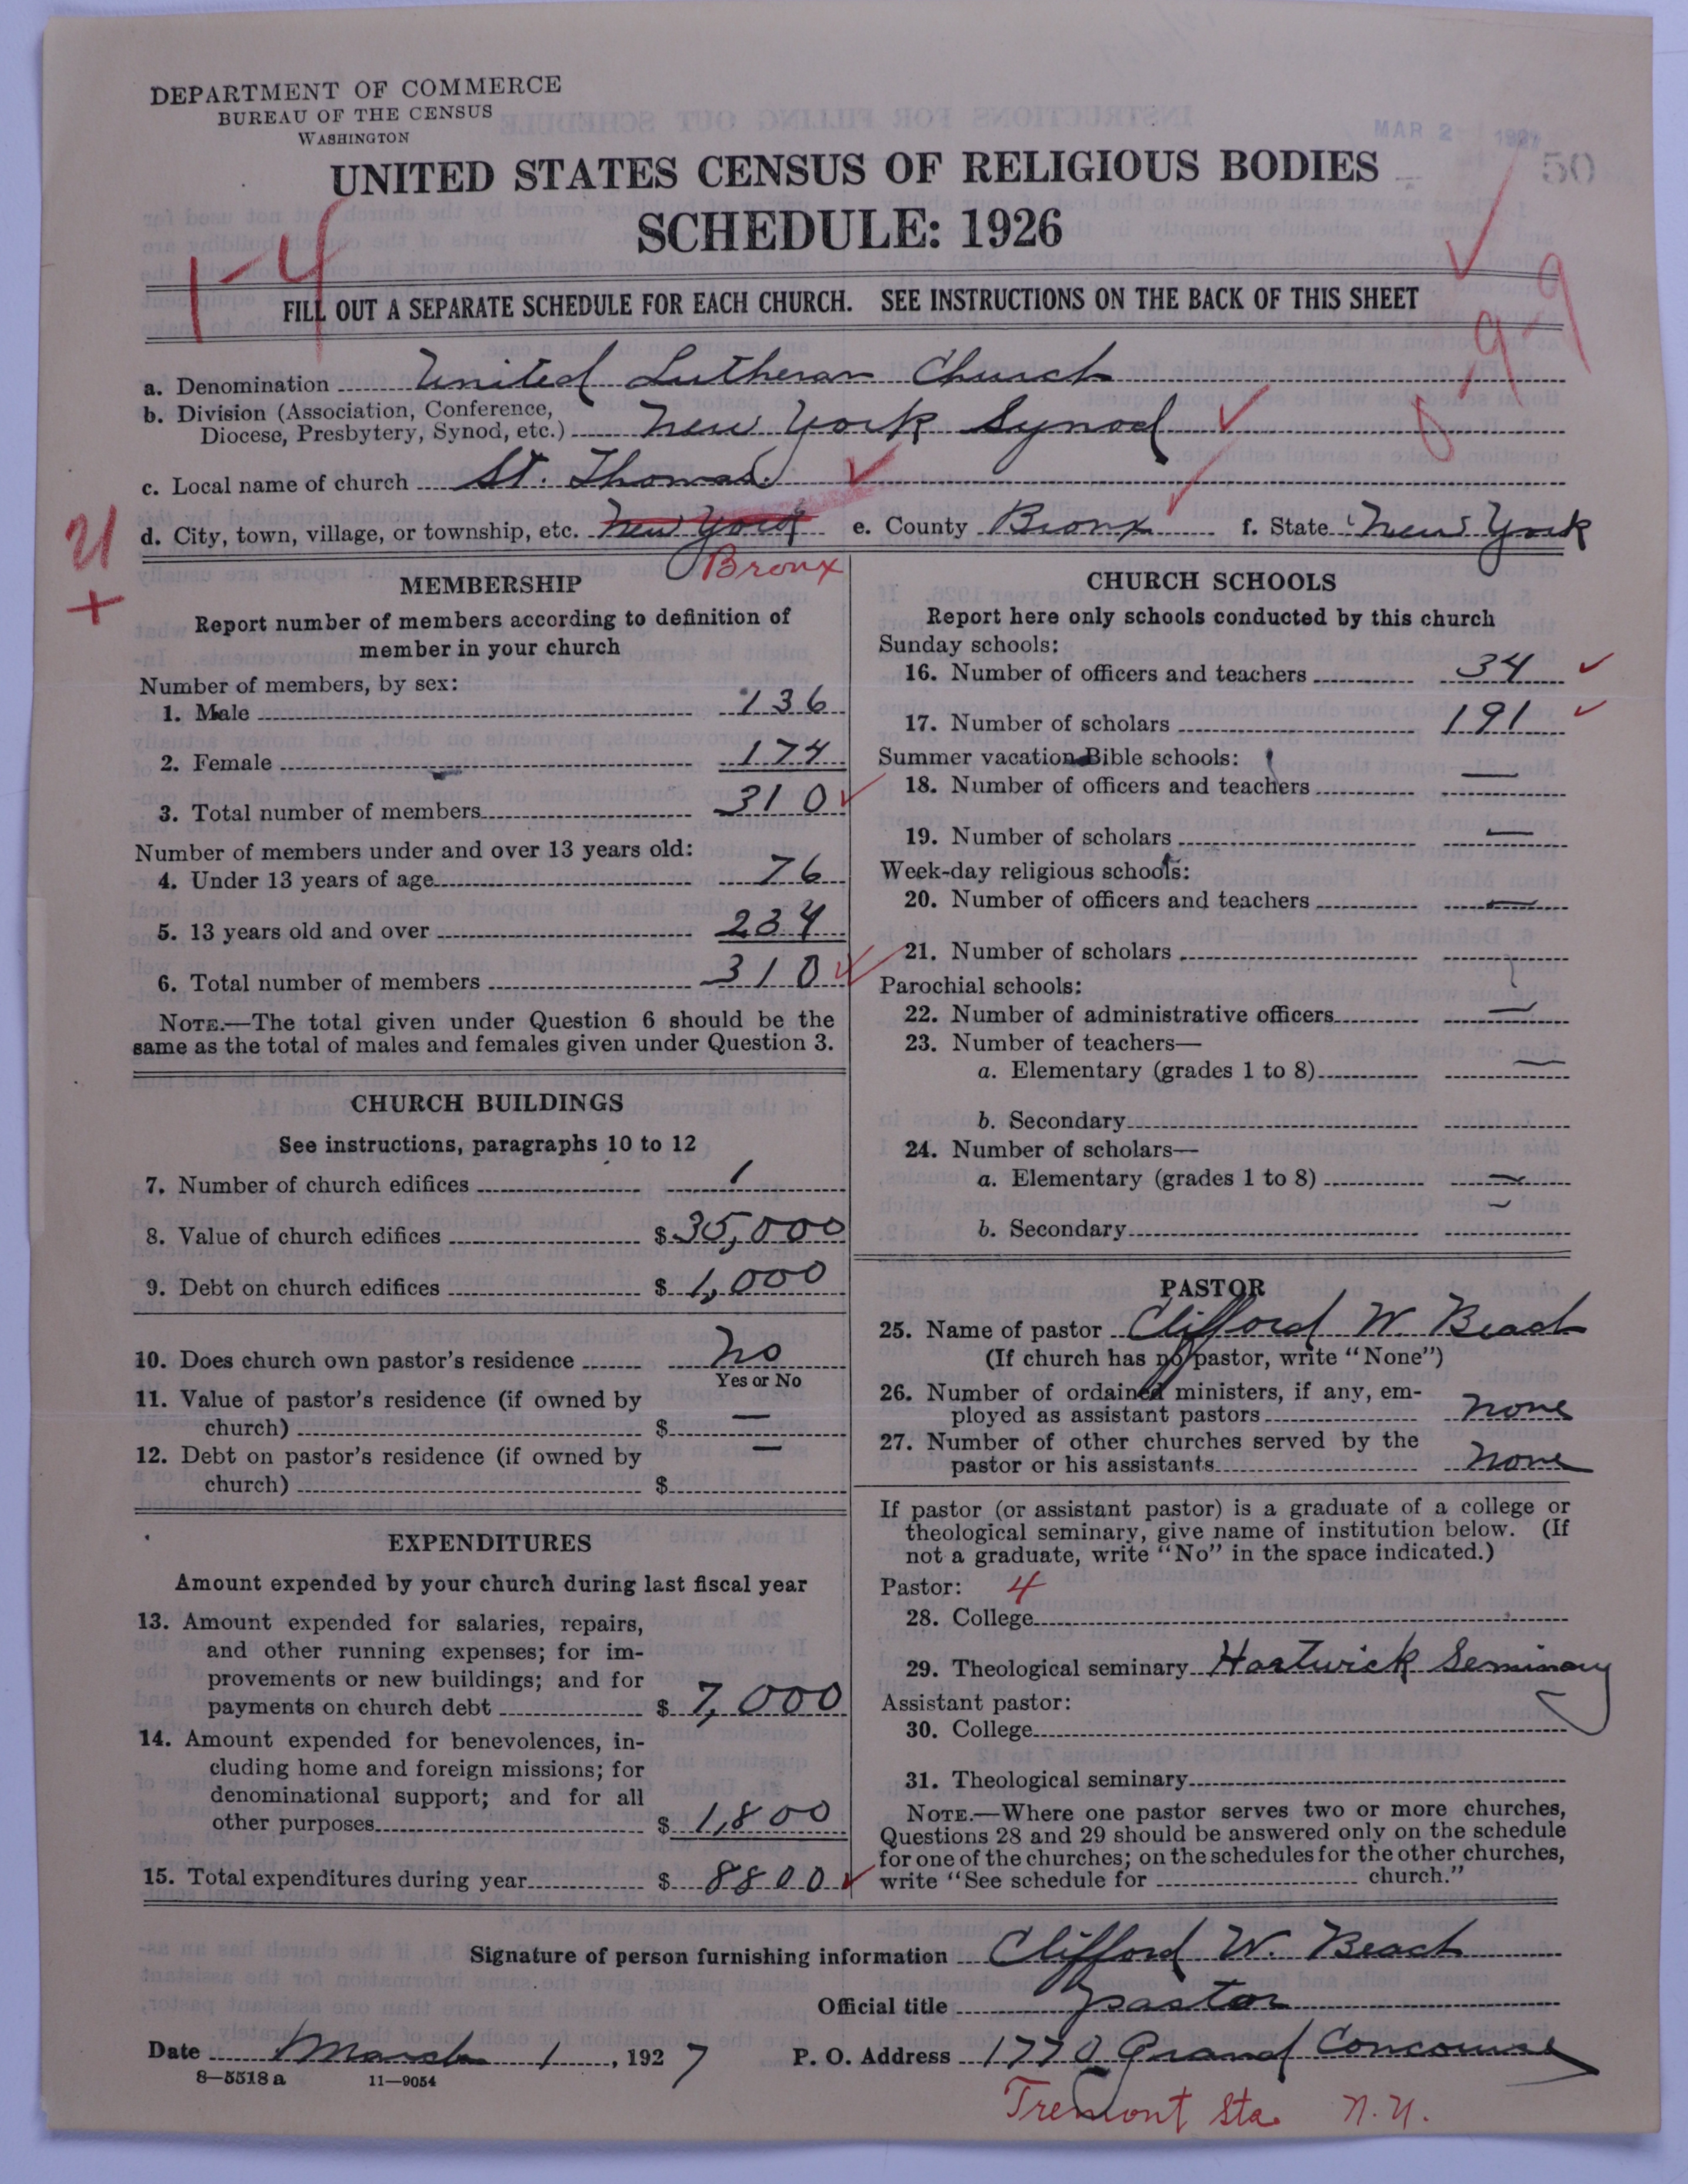 DEPARTMENT OF COMMERCE
BUREAU OF THE CENSUS
WASHINGTON
MAR 2 1927
50
UNITED STATES CENSUS OF RELIGIOUS BODIES
SCHEDULE: 1926
1-4
FILL OUT A SEPARATE SCHEDULE FOR EACH CHURCH. SEE INSTRUCTIONS ON THE BACK OF THIS SHEET
a. Denomination United Lutheran Church
b. Division (Association, Conference,
Diocese, Presbytery, Synod, etc.) New York Synod
c. Local name of church St. Thomas
d. City, town, village, or township, etc. New York e. County Bronx f. State New York
Bronx
MEMBERSHIP
Report number of members according to definition of
member in your church
Number of members, by sex:
1. Male 136
2. Female 174
3. Total number of members 310
Number of members under and over 13 years old:
4. Under 13 years of age 76
5. 13 years old and over 234
6. Total number of members 310
NOTE.—The total given under Question 6 should be the
same as the total of males and females given under Question 3.
CHURCH BUILDINGS
See instructions, paragraphs 10 to 12
7. Number of church edifices 1
8. Value of church edifices $ 35,000
9. Debt on church edifices $ 1,000
10. Does church own pastor's residence No
Yes or No
11. Value of pastor's residence (if owned by
church) $ —
12. Debt on pastor's residence (if owned by
church) $ —
EXPENDITURES
Amount expended by your church during last fiscal year
13. Amount expended for salaries, repairs,
and other running expenses; for im-
provements or new buildings; and for
payments on church debt $ 7,000
14. Amount expended for benevolences, in-
cluding home and foreign missions; for
denominational support; and for all
other purposes $ 1,800
15. Total expenditures during year $ 8800
CHURCH SCHOOLS
Report here only schools conducted by this church
Sunday schools:
16. Number of officers and teachers 34
17. Number of scholars 191
Summer vacation Bible schools:
18. Number of officers and teachers —
19. Number of scholars —
Week-day religious schools:
20. Number of officers and teachers —
21. Number of scholars
Parochial schools:
22. Number of administrative officers —
23. Number of teachers—
a. Elementary (grades 1 to 8) —
b. Secondary
24. Number of scholars—
a. Elementary (grades 1 to 8) —
b. Secondary —
PASTOR
25. Name of pastor Clifford W. Beach
(If church has no pastor, write "None")
26. Number of ordained ministers, if any, em-
ployed as assistant pastors none
27. Number of other churches served by the
pastor or his assistants none
If pastor (or assistant pastor) is a graduate of a college or
theological seminary, give name of institution below. (If
not a graduate, write "No" in the space indicated.)
Pastor: 4
28. College
29. Theological seminary Hartwick Seminary
Assistant pastor:
30. College
31. Theological seminary
NOTE.—Where one pastor serves two or more churches,
Questions 28 and 29 should be answered only on the schedule
for one of the churches; on the schedules for the other churches,
write "See schedule for church."
Signature of person furnishing information Clifford W. Beach
Official title pastor
Date March 1, 1927 P. O. Address 1770 Grand Concourse
8—5518a 11—9054
Tremont Sta. N.Y.